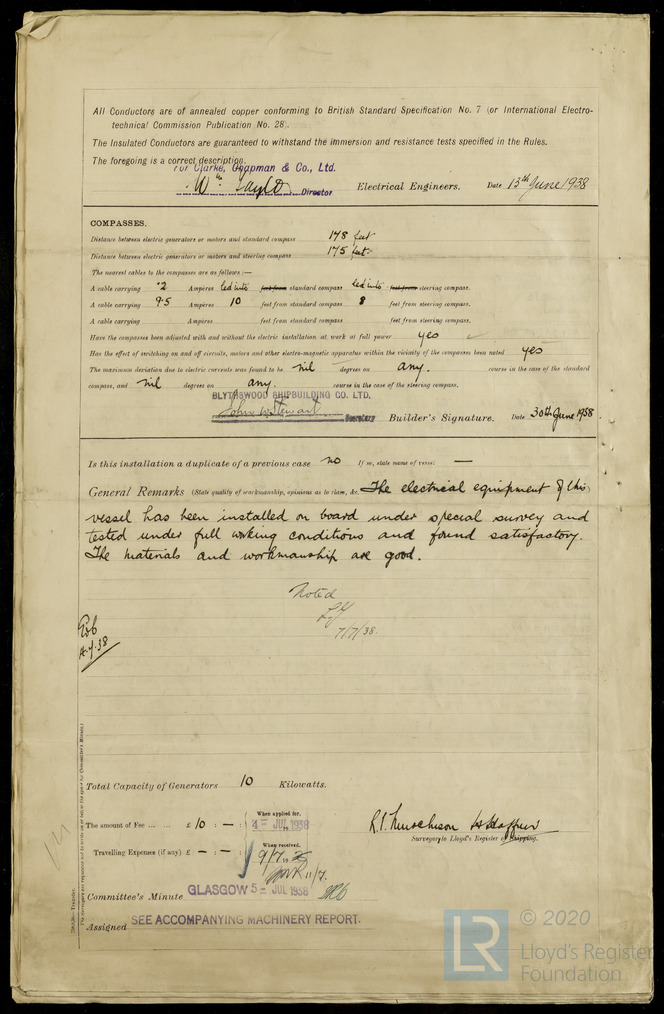 All Conductors are of annealed copper conforming to British Standard Specification No. 7 (or International Electro-
technical Commission Publication No. 28).
The Insulated Conductors are guaranteed to withstand the immersion and resistance tests specified in the Rules.
The foregoing is a correct description.
For Clarke, Chapman & Co., Ltd.
Wm Director Electrical Engineers. Date 13th June 1938
COMPASSES.
Distance between electric generators or motors and standard compass 178 feet
Distance between electric generators or motors and steering compass 175 feet
The nearest cables to the compasses are as follows:—
A cable carrying .2 Ampères led into feet from standard compass led into feet from steering compass.
A cable carrying 9.5 Ampères 10 feet from standard compass 8 feet from steering compass.
A cable carrying Ampères feet from standard compass feet from steering compass.
Have the compasses been adjusted with and without the electric installation at work at full power yes
Has the effect of switching on and off circuits, motors and other electro-magnetic apparatus within the vicinity of the compasses been noted yes
The maximum deviation due to electric currents was found to be nil degrees on any. course in the case of the standard
compass, and nil degrees on any. course in the case of the steering compass.
BLYTHSWOOD SHIPBUILDING CO. LTD.
John W. Stewart Secretary Builder's Signature. Date 30th June 1938
Is this installation a duplicate of a previous case no If so, state name of vessel —
General Remarks (State quality of workmanship, opinions as to class, &c. The electrical equipment of this
vessel has been installed on board under special survey and
tested under full working conditions and found satisfactory.
The materials and workmanship are good.
Noted
7/7/38.
Total Capacity of Generators 10 Kilowatts.
The amount of Fee ... ... £ 10 : — : When applied for, 4 - JUL 1938
R. S. Hutchison
Surveyor to Lloyd's Register of Shipping.
Travelling Expenses (if any) £ — : — : When received, 9/7/19
11/7.
Committee's Minute GLASGOW 5 - JUL 1938
Assigned SEE ACCOMPANYING MACHINERY REPORT.
LR © 2020
Lloyd's Register
Foundation